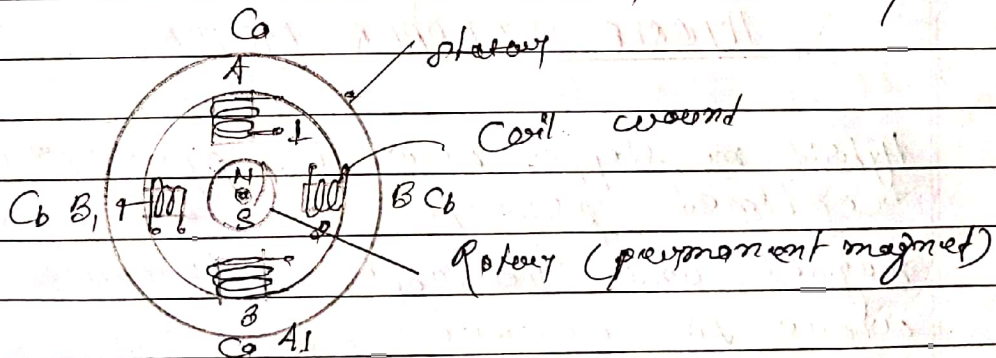 Ca
A
stator
1
Coil wound
N
Cb B1 9
B Cb
S
Rotor (permanent magnet)
3
Ca A1